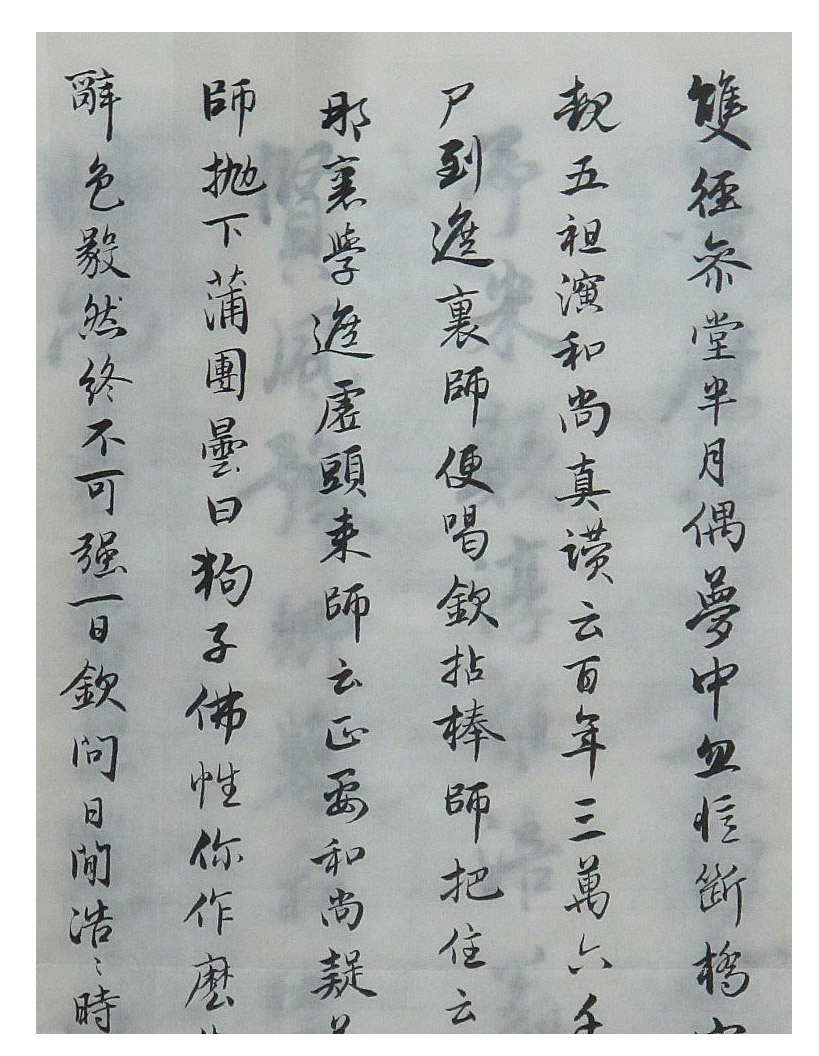 雙徑參堂半月偶夢中忽憶斷橋
覩五祖演和尚真讚云百年三萬六千
尸到遮裏師便喝欽拈棒師把住云
那裏學遮虛頭來師云正要和尚疑
師拋下蒲團曇曰狗子佛性你作麼
辭色毅然終不可强一日欽問日間浩〻時